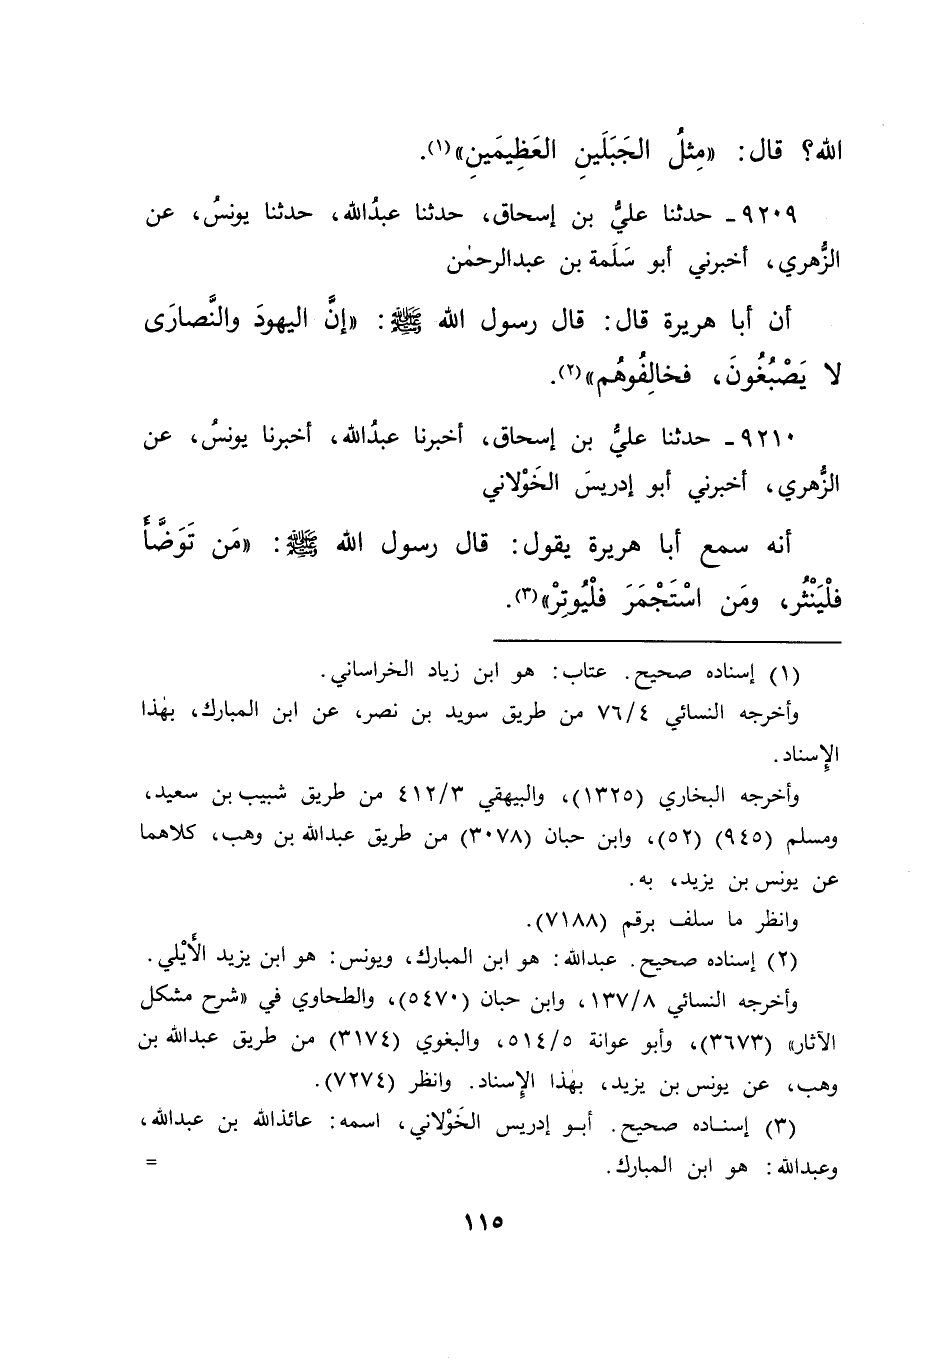 الله؟ قال: «مِثلُ الجَبَلَينِ العَظِيمَينِ»(١).
٩٢٠٩ـ حدثنا عليُّ بن إسحاق، حدثنا عبدُالله، حدثنا يونسُ، عن
الزُّهري، أخبرني أبو سَلَمة بن عبدالرحمٰن
أن أبا هريرة قال: قال رسول الله ﷺ: «إنَّ اليهودَ والنَّصارَى
لا يَصْبُغُونَ، فخالِفُوهُم»(٢).
٩٢١٠ـ حدثنا عليُّ بن إسحاق، أخبرنا عبدُالله، أخبرنا يونسُ، عن
الزُّهري، أخبرني أبو إدريسَ الخَوْلاني
أنه سمع أبا هريرة يقول: قال رسول الله ﷺ: «مَن تَوَضَّأَ
فلْيَنْثُر، ومَن اسْتَجْمَرَ فلْيُوتِرْ»(٣).
(١) إسناده صحيح. عتاب: هو ابن زياد الخراساني.
وأخرجه النسائي ٧٦/٤ من طريق سويد بن نصر، عن ابن المبارك، بهٰذا
الإِسناد.
وأخرجه البخاري (١٣٢٥)، والبيهقي ٤١٢/٣ من طريق شبيب بن سعيد،
ومسلم (٩٤٥) (٥٢)، وابن حبان (٣٠٧٨) من طريق عبدالله بن وهب، كلاهما
عن يونس بن يزيد، به.
وانظر ما سلف برقم (٧١٨٨).
(٢) إسناده صحيح. عبدالله: هو ابن المبارك، ويونس: هو ابن يزيد الأَيْلي.
وأخرجه النسائي ١٣٧/٨، وابن حبان (٥٤٧٠)، والطحاوي في «شرح مشكل
الآثار» (٣٦٧٣)، وأبو عوانة ٥١٤/٥، والبغوي (٣١٧٤) من طريق عبدالله بن
وهب، عن يونس بن يزيد، بهٰذا الإِسناد. وانظر (٧٢٧٤).
(٣) إسناده صحيح. أبو إدريس الخَوْلاني، اسمه: عائذالله بن عبدالله،
وعبدالله: هو ابن المبارك. =
١١٥